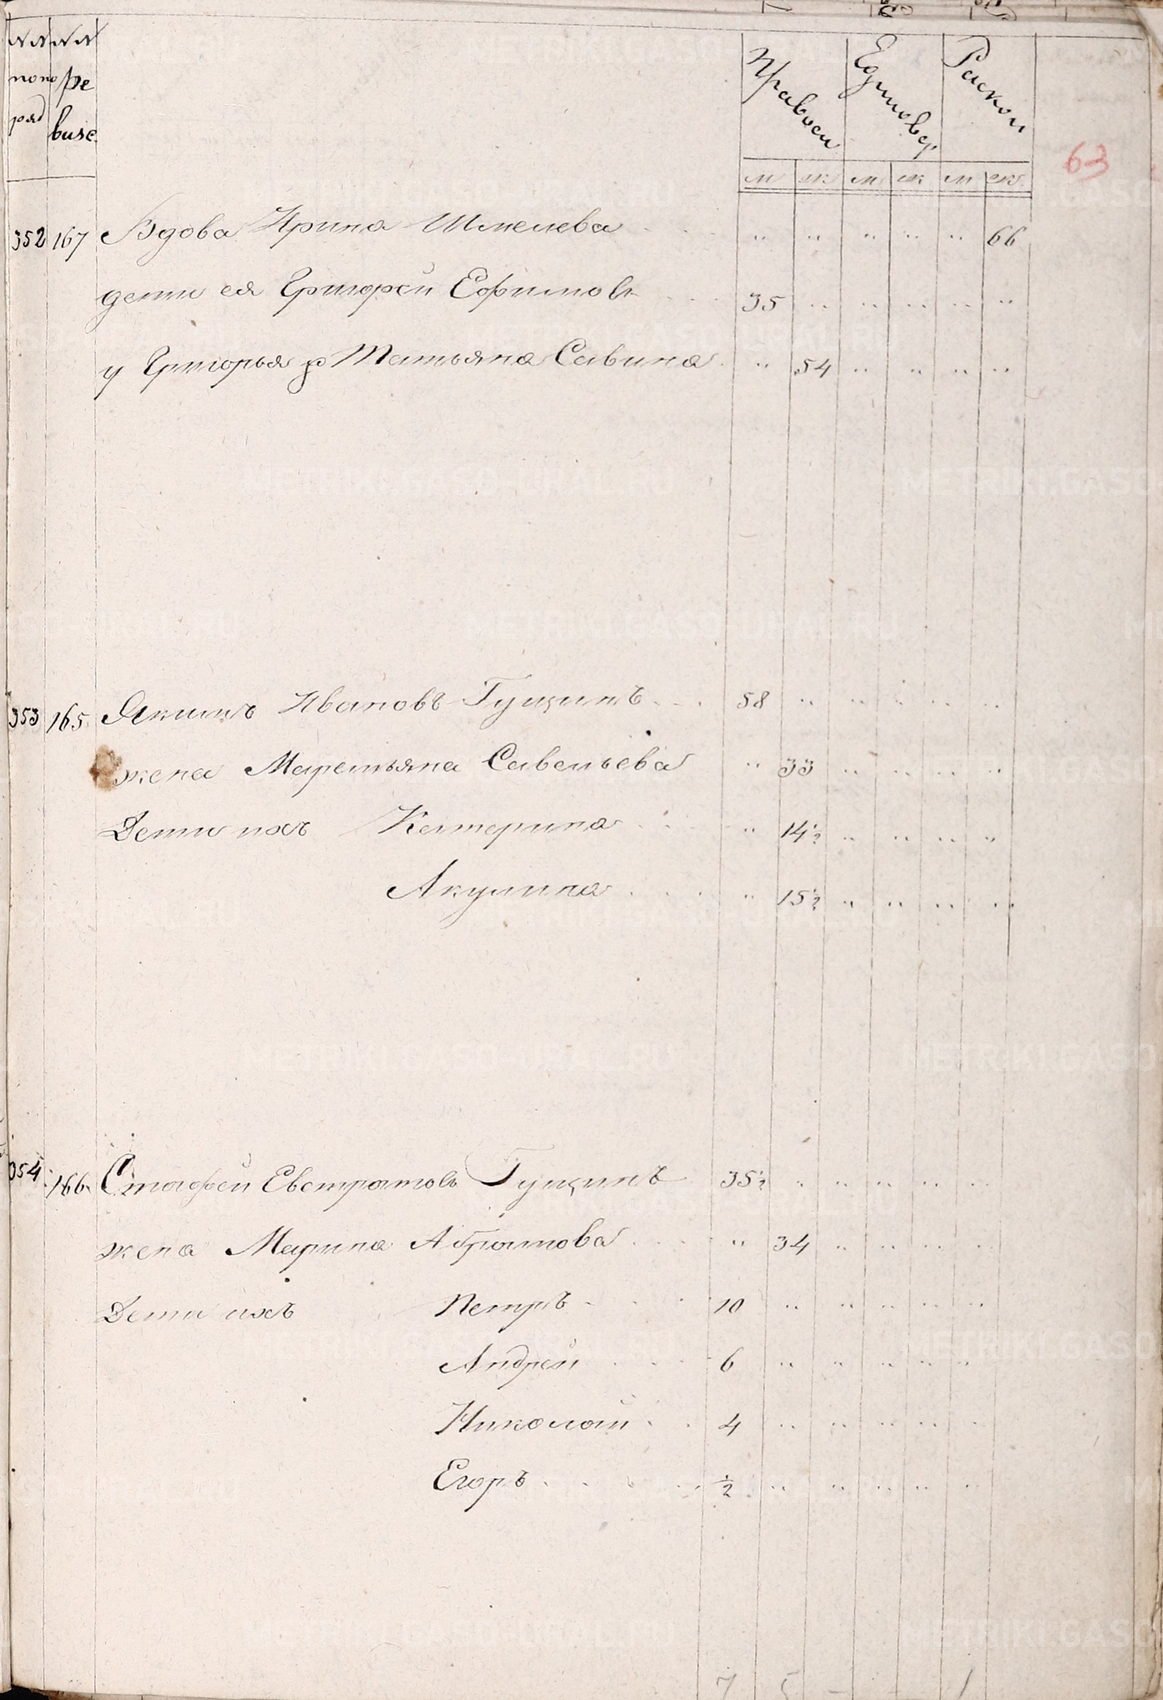 №№ №№
по по ре
ряд визс.
Правосл Единовер Раскол
м ж м ж м ж
63
352 167 Вдова Ирина Шмелева " " " " " 66
дети ея Григорей Ефимовъ 35 " " " " "
у Григорья ж Татьяна Савина " 54 " " " "
353 165 Якимъ Ивановъ Гущинъ 58 " " " " "
жена Маремьяна Савельева " 33 " " " "
Дети ихъ Катерина " 14½ " " " "
Акулина " 15½ " " " "
354 166 Стафей Евстратовъ Гущинъ 35½ " " " " "
жена Марина Абрамова " 34 " " " "
Дети ихъ Петръ 10 " " " " "
Андрей 6 " " " " "
Николай 4 " " " " "
Егоръ ½ " " " " "
7 5 – – – 1
METRIKI.GASO-URAL.RU